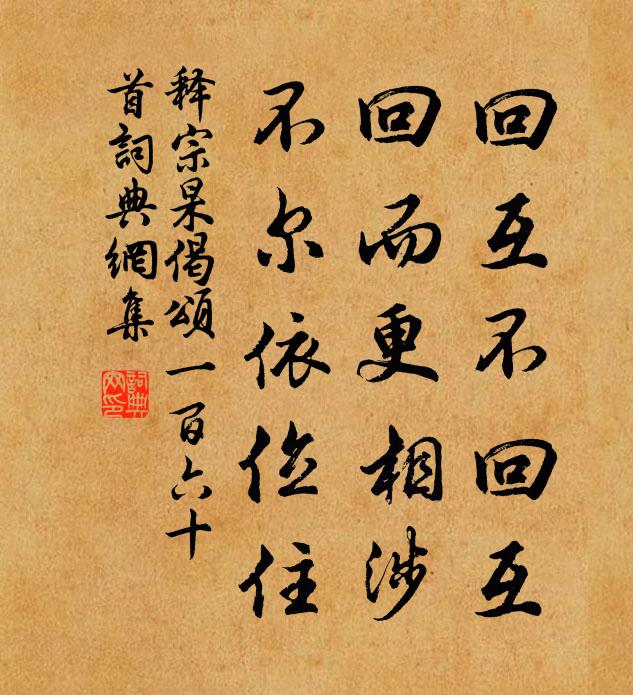 回互不回互
回而更相涉
不尔依位住
释宗杲偈頌一百六十
首詞典網集
詞典
网印